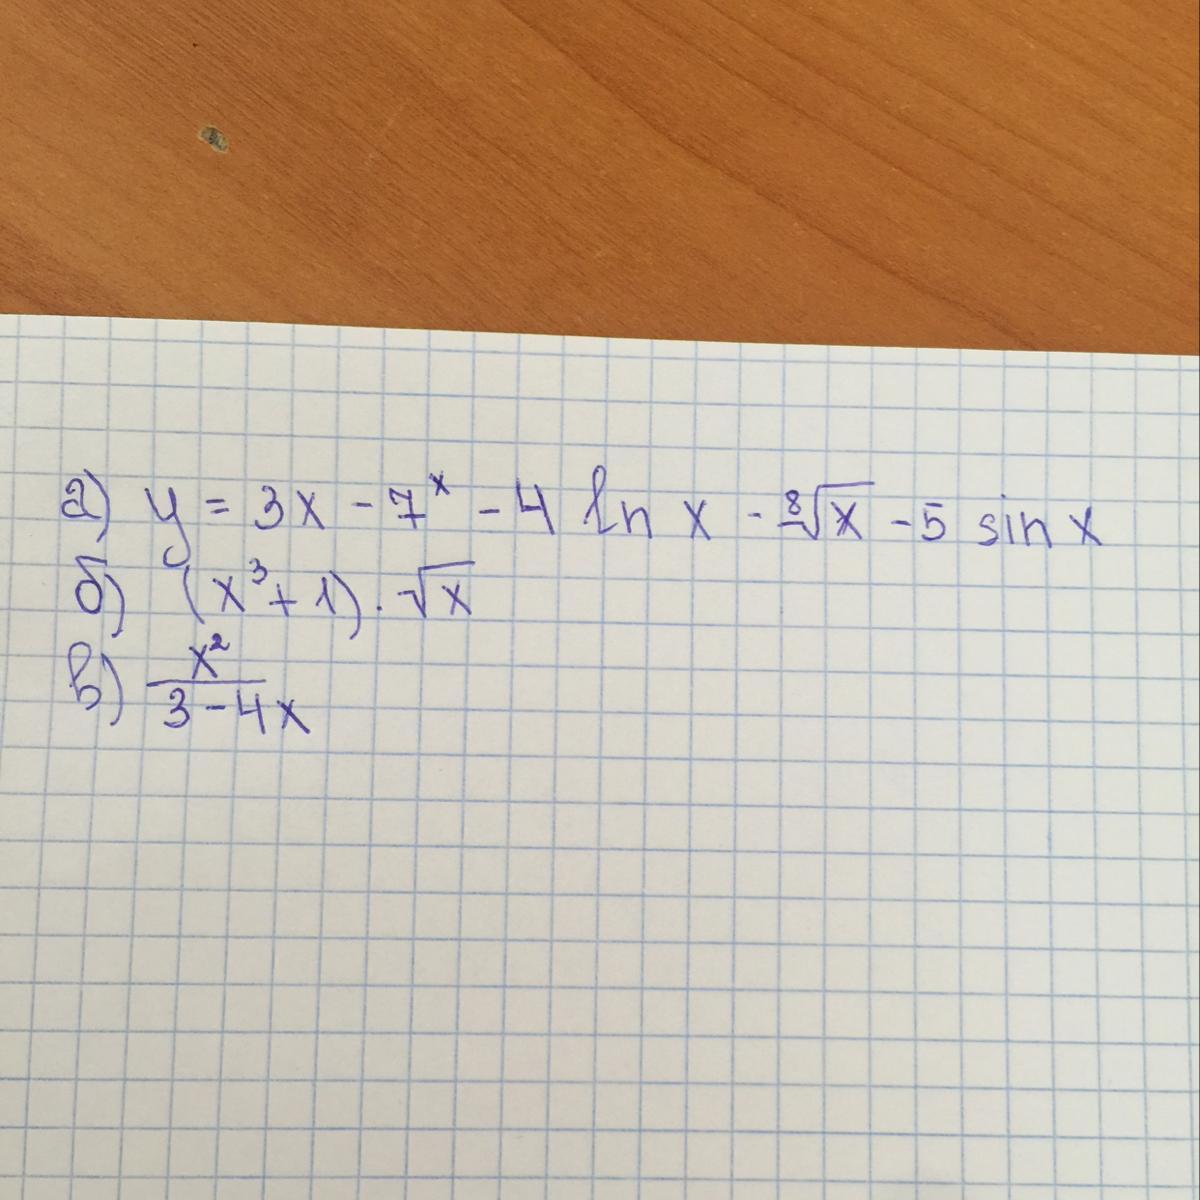 а) y = 3x - 7^x - 4 ln x - ⁸√x - 5 sin x
б) (x³ + 1) · √x
в) x² / (3 - 4x)